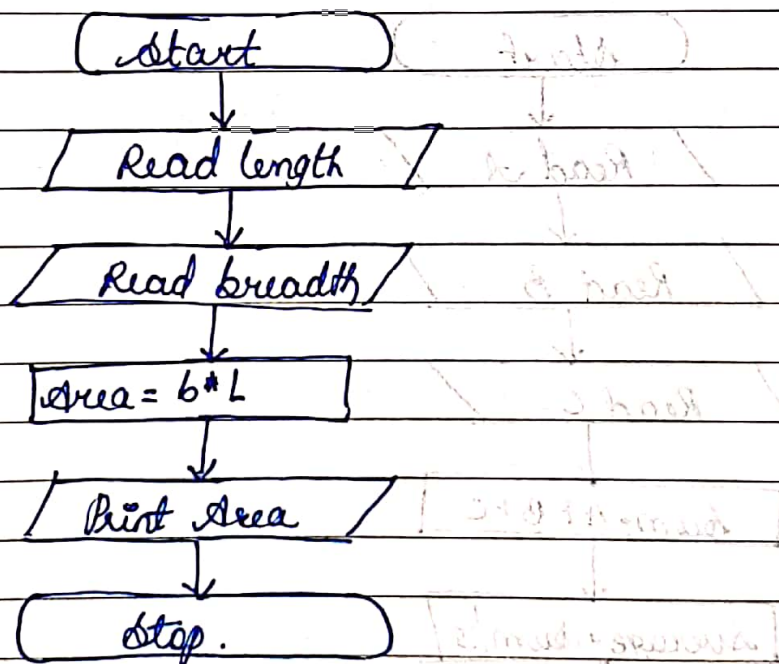 Start
Read length
Read breadth
Area = b * L
Print Area
Stop.